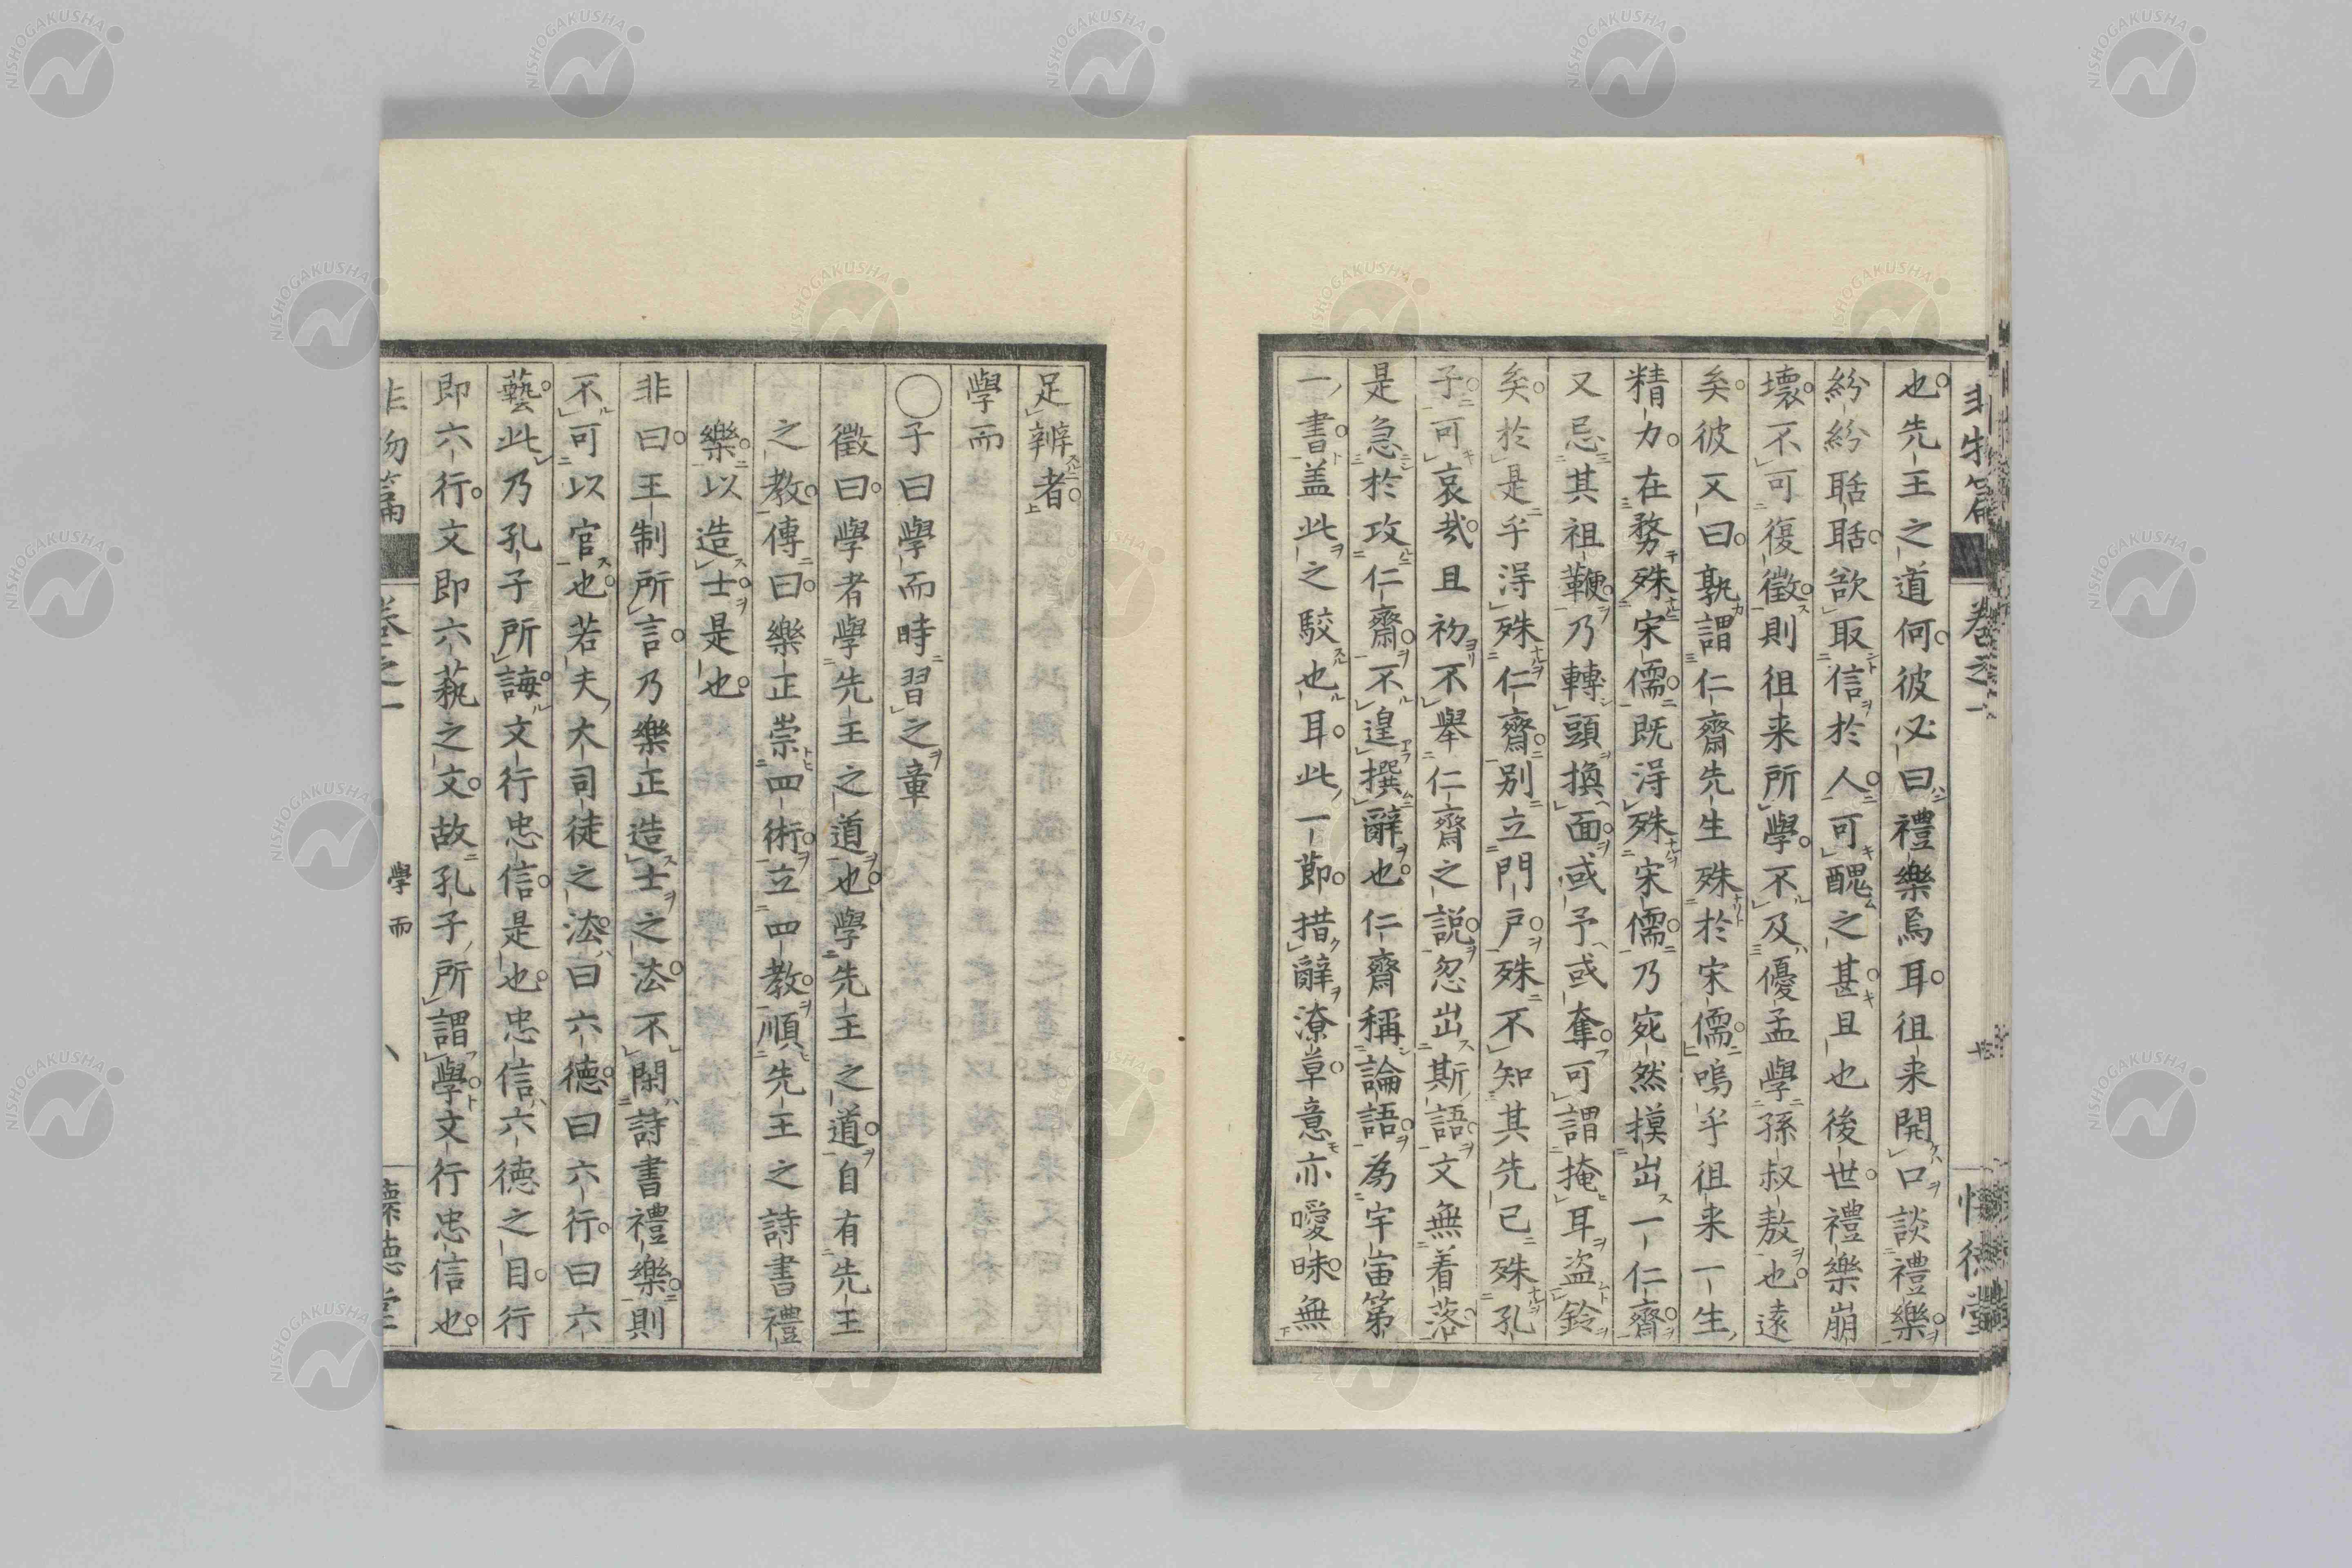 也先王之道何彼必曰禮樂焉耳徂来開口談禮樂
紛紛聒聒欲取信於人可醜之甚且也後世禮樂崩
壞不可復徵則徂来所學不及優孟學孫叔敖也遠
矣彼又曰孰謂仁齋先生殊於宋儒嗚乎徂来一生
精力在務殊宋儒既淂殊宋儒乃宛然摸出一仁齊
又忌其祖鞭乃轉頭換面或予或奪可謂掩耳盗鈴
矣於是乎淂殊仁齋别立門戸殊不知其先已殊孔
子可哀㢤且初不舉仁齋之説忽出斯語文無着落
是急於攻仁齋不遑撰辭也仁齋稱論語為宇宙第
一書盖此之駮也耳此一莭措辭潦草意亦曖昧無
足辨者
學而
○子曰學而時習之章
徵曰學者學先王之道也學先王之道自有先王
之教傳曰樂正崇四術立四教順先王之詩書禮
樂以造士是也
非曰王制所言乃樂正造士之法不閑詩書禮樂則
不可以官也若夫大司徒之法曰六德曰六行曰六
藝此乃孔子所誨文行忠信是也忠信六德之目行
即六行文即六藝之文故孔子所謂學文行忠信也
非物篇 卷之一 學而 懐徳堂
NISHOGAKUSHA